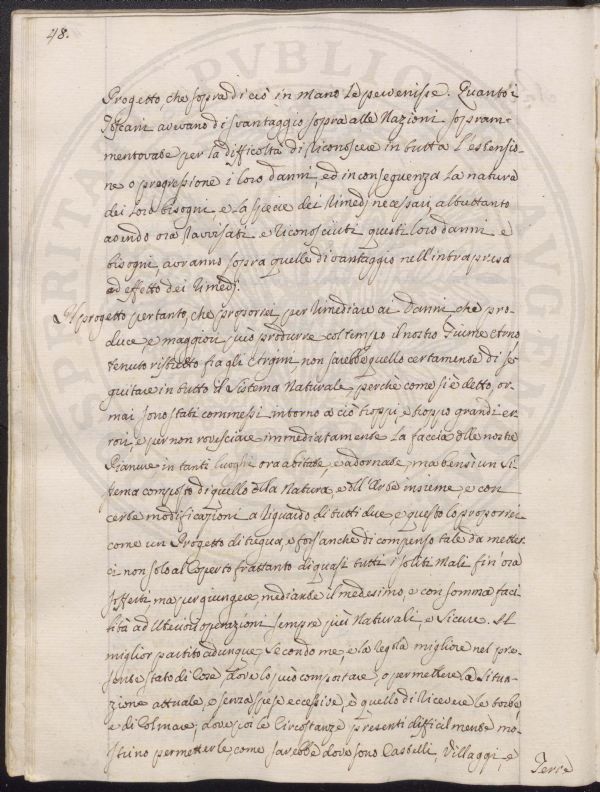 48.
Progetto, che sopra di ciò in mano le pervenisse. Quanto i
Toscani avevano disvantaggio sopra alle Nazioni sopram-
mentovate per la difficoltà di riconoscere in tutta l'estensio-
ne o progressione i loro danni, ed in conseguenza la natura
dei loro bisogni e la specie dei rimedj necessarj, altrettanto
avendo ora ravvisati e riconosciuti questi loro danni e
bisogni, avranno sopra quelle di vantaggio nell'intrapresa
ad effetto dei rimedj.
Il progetto pertanto, che proporrei per rimediare ai danni che pro-
duce, e maggiori può produrre col tempo il nostro Fiume Arno
tenuto ristretto fra gli Argini non sarebbe quello certamente di se-
guitare in tutto il Sistema Naturale, perchè come si è detto, or-
mai sono stati commessi intorno a ciò troppi e troppo grandi er-
rori, e per non rovesciare immediatamente la faccia delle nostre
Pianure in tanti luoghi ora abitate, e adornate, ma bensì un Si-
stema composto di quello della Natura, e dell'Arte insieme, e con
certe modificazioni a riguardo di tutti due e questo lo proporrei
come un Progetto di tregua, e fors'anche di compenso tale da metter-
ci non solo al Coperto frattanto di quasi tutti i soliti Mali fin'ora
sofferti ma per giungere, mediante il medesimo, e con somma faci
lità ad ulteriori operazioni sempre più Naturali, e Sicure. Il
miglior partito adunque, secondo me, e la regola migliore nel pre-
sente stato di Cose, dove lo può comportare, o permettere la Situa-
zione attuale, e senza spese eccessive, è quello di ricevere le torbe,
e di Colmare; dove poi le Circostanze presenti difficilmente mo-
strino permetterle, come sarebbe dove sono Castelli, Villaggi, e
Terre